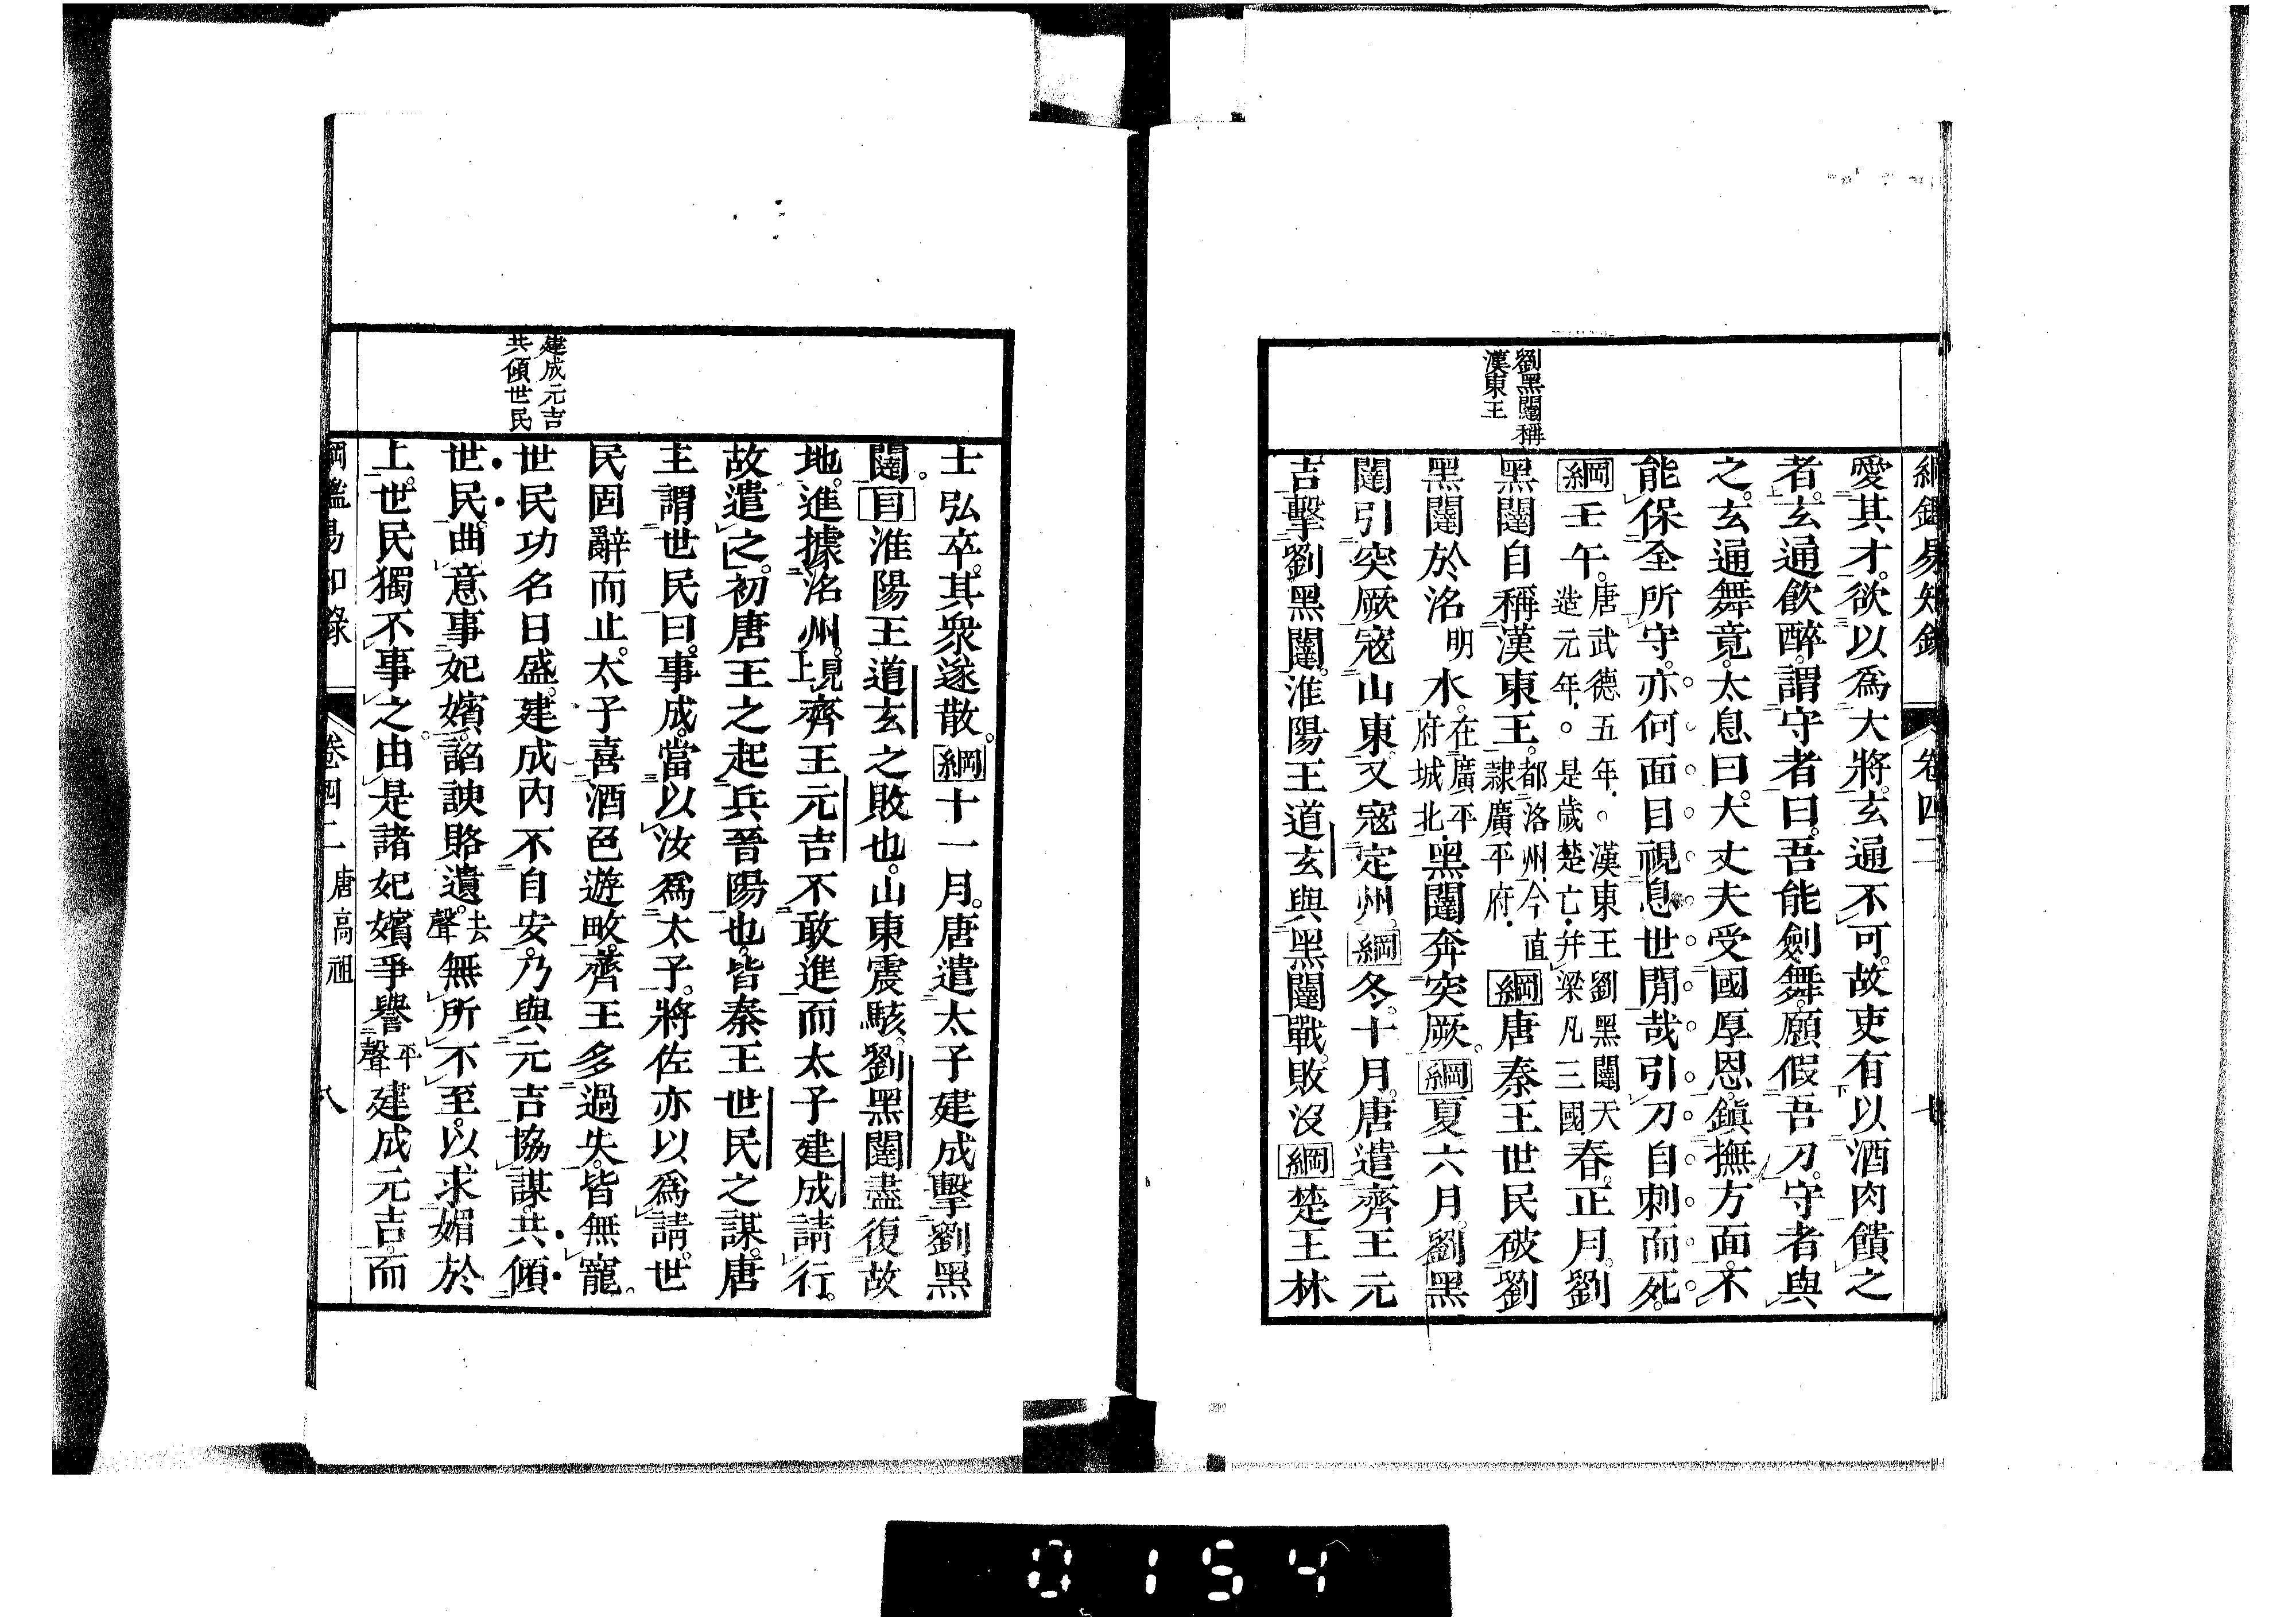 綱鑑易知錄 卷四二 七
劉黑闥稱
漢東王
愛其才。欲以爲大將。玄通不可。故吏有以酒肉饋之
者。玄通飮醉。謂守者曰。吾能劍舞。願假吾刀。守者與
之。玄通舞竟。太息曰。大丈夫受國厚恩。鎭撫方面。不
能保全所守。亦何面目視息世閒哉。引刀自刺而死。
綱壬午。唐武德五年。○漢東王劉黑闥天造元年。○是歲楚亡。幷梁凡三國春。正月。劉
黑闥自稱漢東王。都洛州。今直隸廣平府。綱唐秦王世民破劉
黑闥於洺明水。在廣平府城北。黑闥奔突厥。綱夏六月。劉黑
闥引突厥寇山東。又寇定州。綱冬。十月。唐遣齊王元
吉擊劉黑闥。淮陽王道玄與黑闥戰。敗沒綱楚王林
士弘卒。其衆遂散。綱十一月。唐遣太子建成擊劉黑
闥。目淮陽王道玄之敗也。山東震駭。劉黑闥盡復故
地。進據洺州。見上齊王元吉不敢進而太子建成請行。
故遣之。初唐王之起兵晉陽也。皆秦王世民之謀。唐
主謂世民曰。事成。當以汝爲太子。將佐亦以爲請。世
民固辭而止。太子喜酒色遊畋。齊王多過失。皆無寵。
世民功名日盛。建成內不自安。乃與元吉協謀。共傾
世民。曲意事妃嬪。諂諛賂遺。去聲無所不至。以求媚於
上。世民獨不事之。由是諸妃嬪爭譽平聲建成元吉。而
建成元吉
共傾世民
綱鑑易知錄 卷四二 唐高祖 八
0154